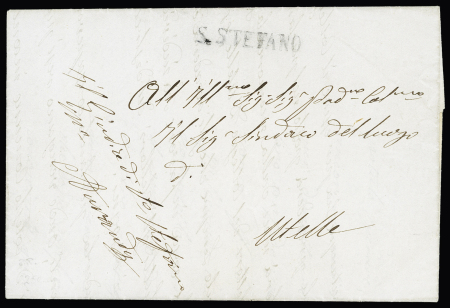 S. STEFANO
All' Ill.mo Sig.r Sig.r Pad.ne Col.mo
Il Sig.r Sindaco del luogo
di
Utelle
Il Giudice di Sto Steffano